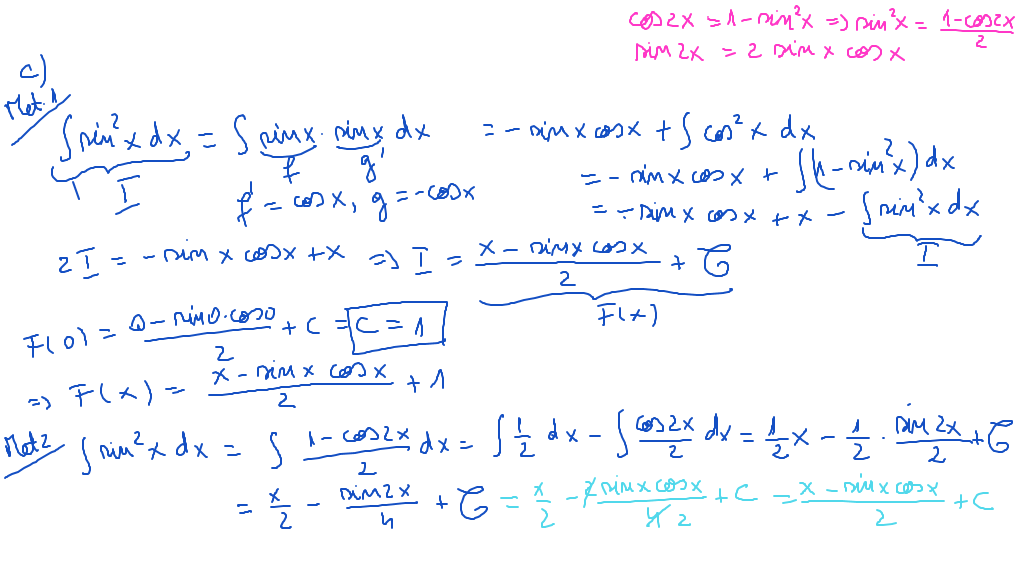 cos2x = 1-sin²x => sin²x = (1-cos2x)/2
sin2x = 2 sin x cos x
c)
Met. 1
∫ sin²x dx = ∫ sinx · sinx dx = -sinx cosx + ∫ cos²x dx
I f g'
f' = cosx, g = -cosx = -sinx cosx + ∫(1-sin²x) dx
= -sinx cosx + x - ∫ sin²x dx
I
2I = -sinx cosx + x => I = (x - sinx cosx)/2 + C
F(x)
F(0) = (0 - sin0·cos0)/2 + C = C = 1
=> F(x) = (x - sinx cosx)/2 + 1
Met 2 ∫ sin²x dx = ∫ (1-cos2x)/2 dx = ∫ 1/2 dx - ∫ cos2x/2 dx = 1/2 x - 1/2 · sin2x/2 + C
= x/2 - sin2x/4 + C = x/2 - 2sinxcosx/4 2 + C = (x - sinxcosx)/2 + C